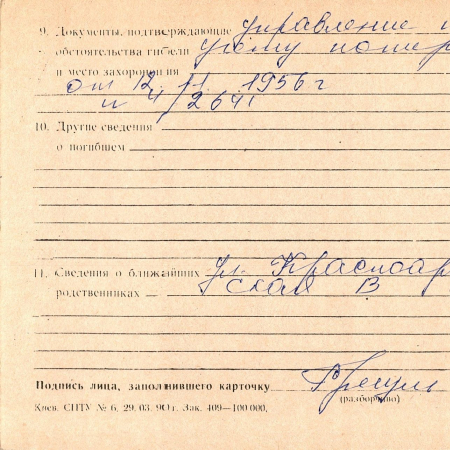 9. Документы, подтверждающие управление п
обстоятельства гибели учету потер
и место захоронения
от 12. 11. 1956 г
н 4/2641
10. Другие сведения
о погибшем
11. Сведения о ближайших ул. Красноар
родственниках ская В
Подпись лица, заполнившего карточку
(разборчиво)
Киев. СПТУ № 6, 29. 03. 90 г. Зак. 409—100 000,